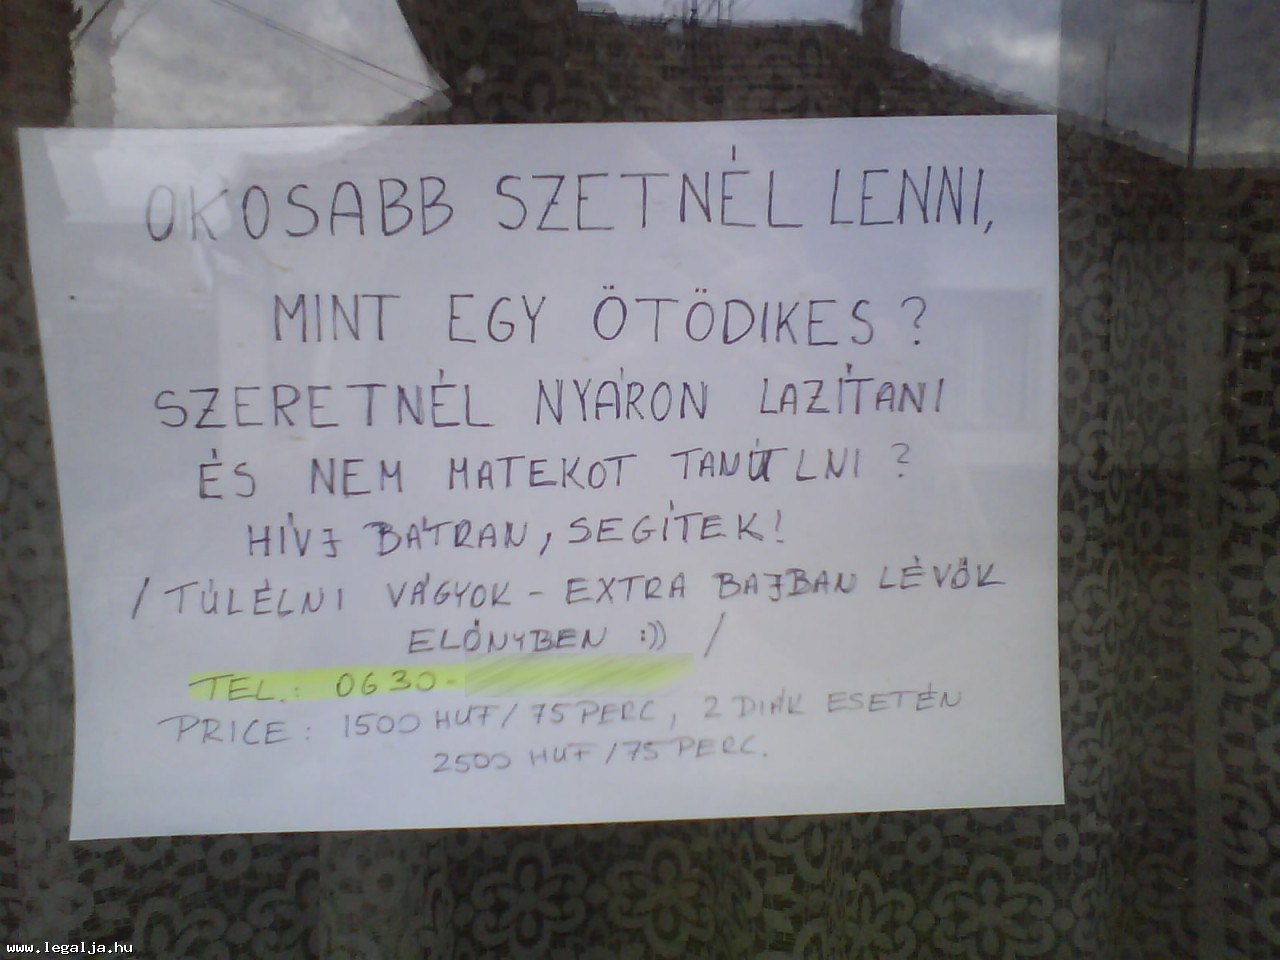 OKOSABB SZETNÉL LENNI,
MINT EGY ÖTÖDIKES?
SZERETNÉL NYÁRON LAZÍTANI
ÉS NEM MATEKOT TANÚLNI?
HÍVJ BÁTRAN, SEGÍTEK!
/TÚLÉLNI VÁGYOK - EXTRA BAJBAN LÉVŐK
ELŐNYBEN :)) /
TEL.: 0630-
PRICE: 1500 HUF/75 PERC, 2 DIÁK ESETÉN
2500 HUF/75 PERC.
www.legalja.hu